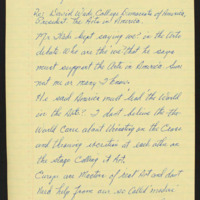 Re: David Wade, College Economists of America,
President. The Arts in America.
Mr. Wade kept saying "we" in the Arts
debate. Who are the "we" that he says
must support the Arts in America. Sure
not me or many I know.
He said America must "lead the World
in the Arts"! I don't believe the
World cares about Urinating on the Cross
and Throwing excretion at such acts on
the stage Calling it Art.
are Masters of real Art and don't
need help from our so called "modern"